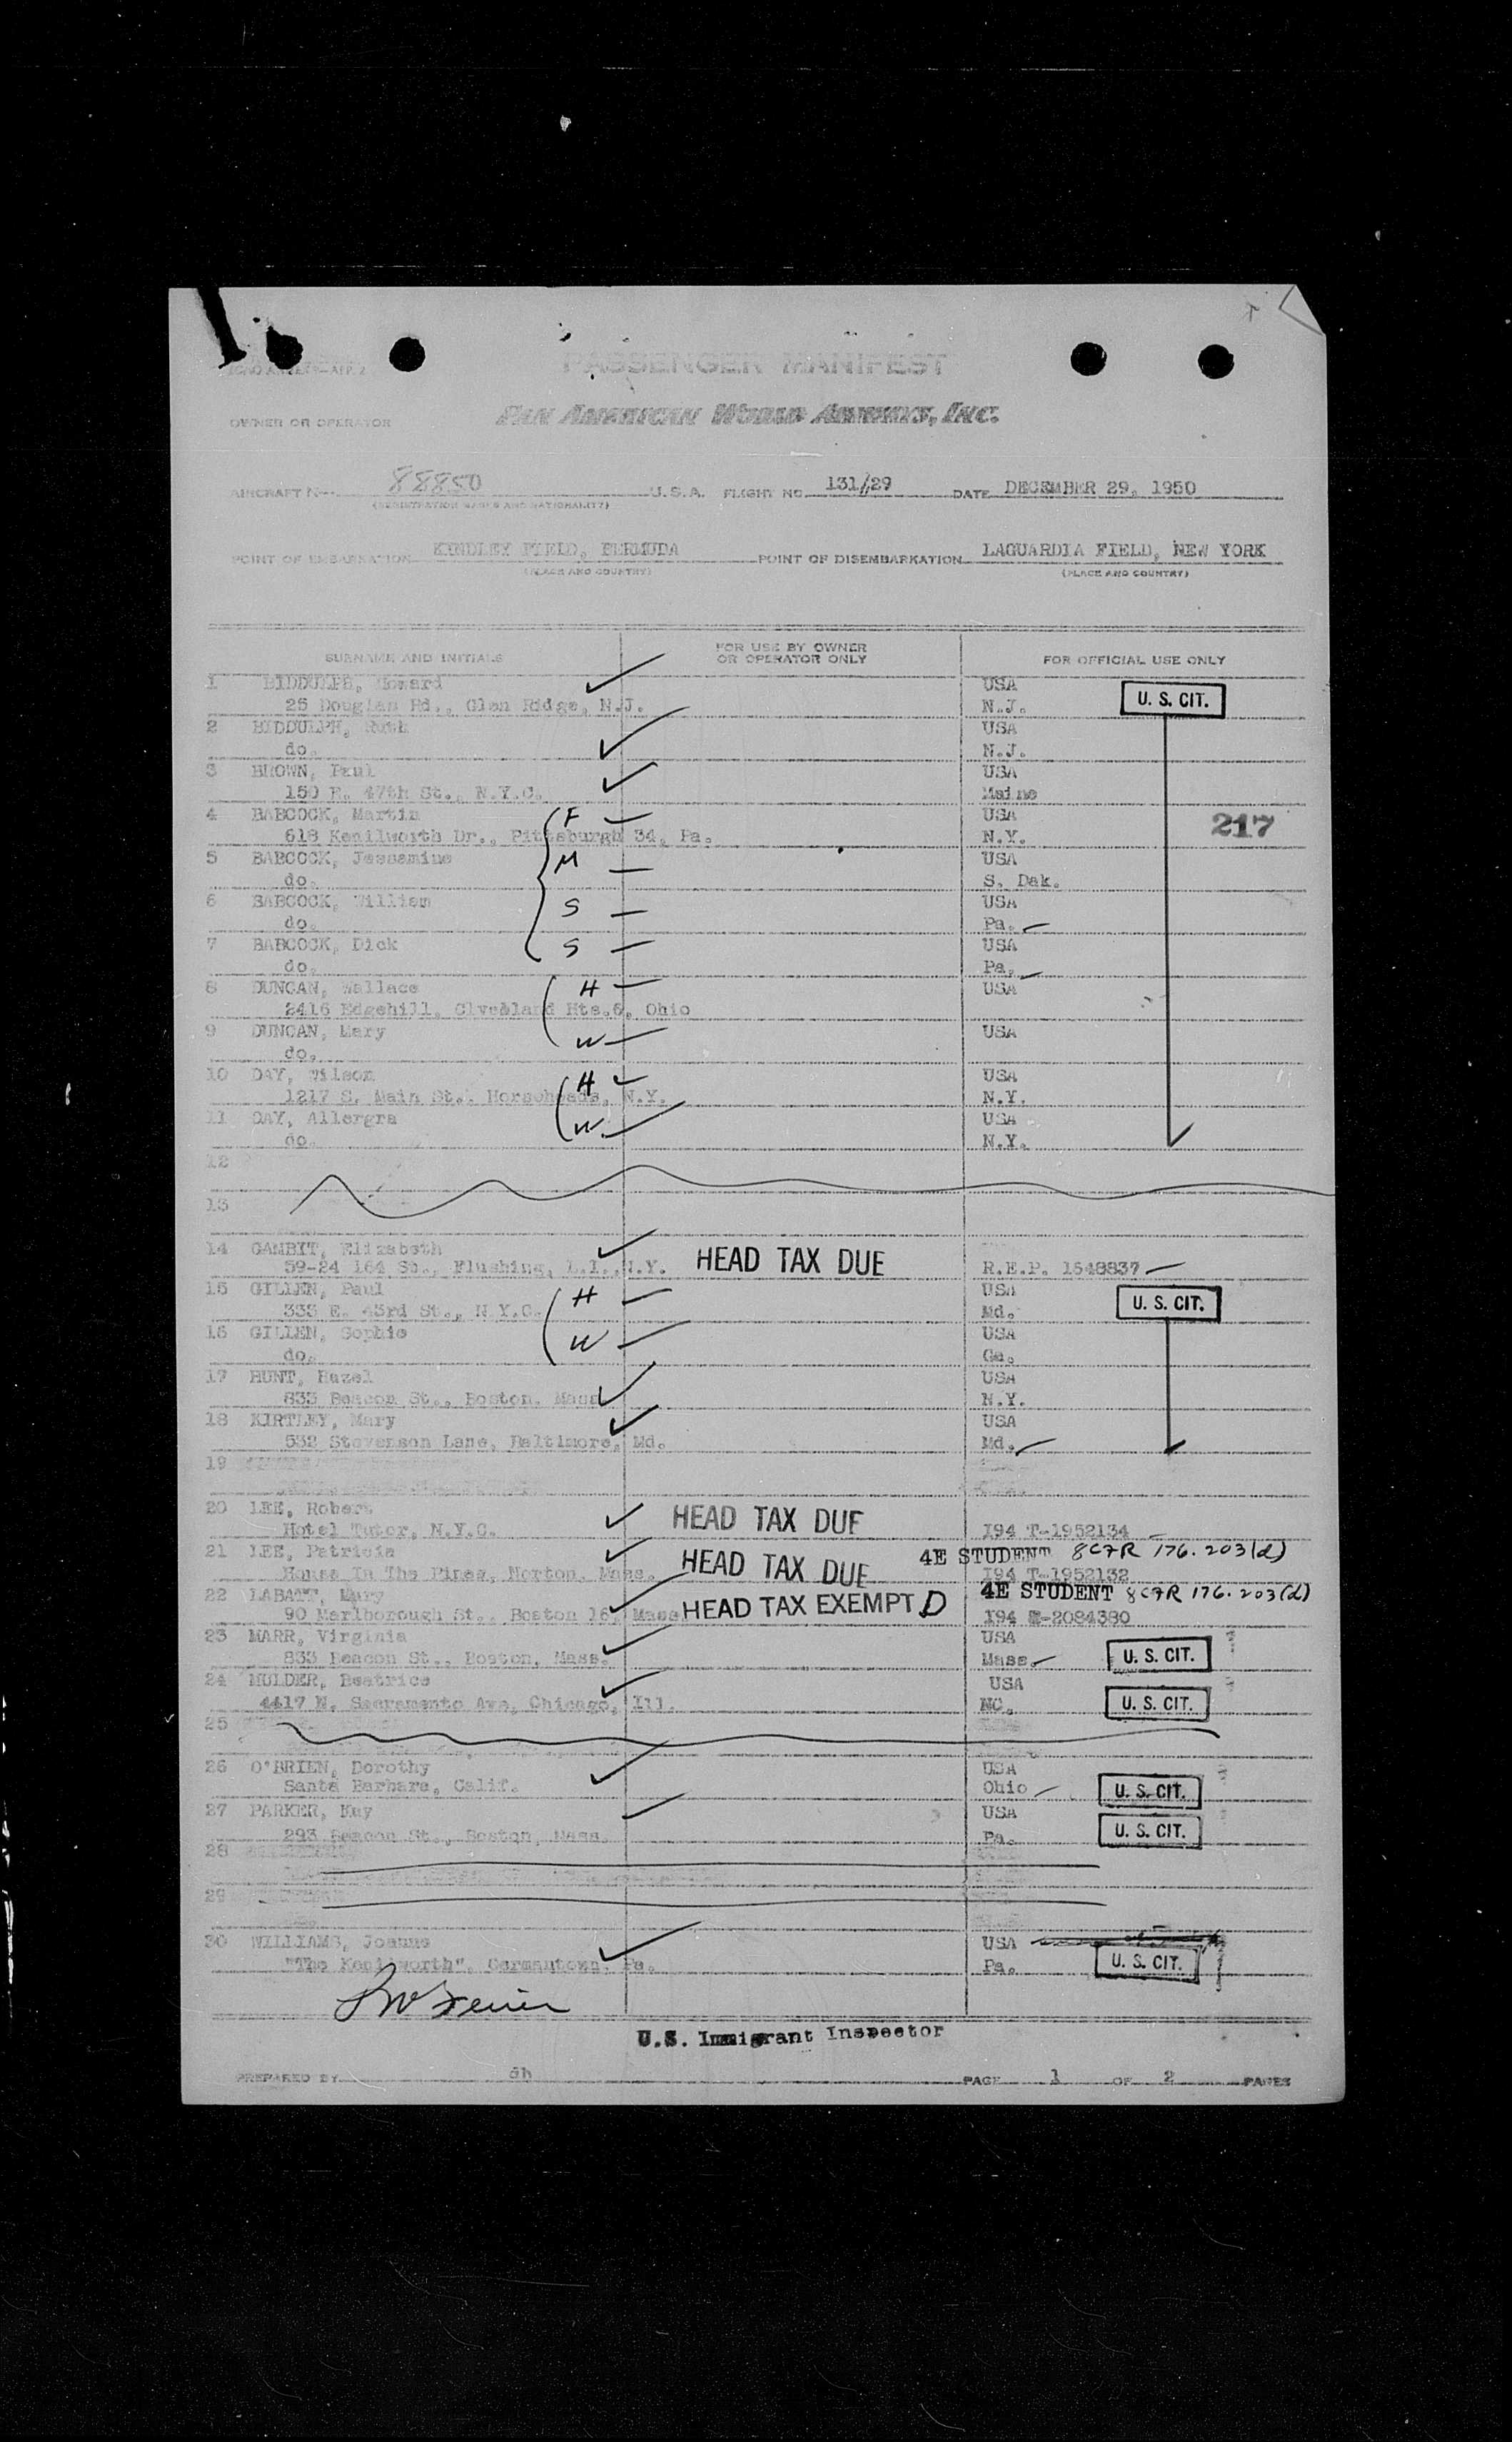 PASSENGER MANIFEST
OWNER OR OPERATOR PAN AMERICAN WORLD AIRWAYS, INC.
AIRCRAFT N- 88850 U.S.A. FLIGHT NO 131//29 DATE DECEMBER 29, 1950
(REGISTRATION MARKS AND NATIONALITY)
POINT OF EMBARKATION KINDLEY FIELD, BERMUDA POINT OF DISEMBARKATION LAGUARDIA FIELD, NEW YORK
(PLACE AND COUNTRY) (PLACE AND COUNTRY)
SURNAME AND INITIALS FOR USE BY OWNER OR OPERATOR ONLY FOR OFFICIAL USE ONLY
1 BIDDULPH, Howard USA
25 Douglas Rd., Glen Ridge, N.J. N.J. U. S. CIT.
2 BIDDULPH, Ruth USA
do. N.J.
3 BROWN, Paul USA
150 E. 47th St., N.Y.C. Maine
4 BABCOCK, Martin F USA
618 Kenilworth Dr., Pittsburgh 34, Pa. N.Y. 217
5 BABCOCK, Jessamine M USA
do. S. Dak.
6 BABCOCK, William S USA
do. Pa.
7 BABCOCK, Dick S USA
do. Pa.
8 DUNCAN, Wallace H USA
2416 Edgehill, Clveland Hts.6, Ohio
9 DUNCAN, Mary W USA
do.
10 DAY, Wilson H USA
1217 S. Main St., Horseheads, N.Y. N.Y.
11 DAY, Allergra W USA
do. N.Y.
12
13
14 GAMBIT, Elizabeth
59-24 164 St., Flushing, L.I., N.Y. HEAD TAX DUE R.E.P. 1548837
15 GILLEN, Paul H USA
333 E. 43rd St., N.Y.C. Md. U. S. CIT.
16 GILLEN, Sophie W USA
do. Ga.
17 HUNT, Hazel USA
833 Beacon St., Boston, Mass N.Y.
18 KIRTLEY, Mary USA
532 Stevenson Lane, Baltimore, Md. Md.
19
20 LEE, Robert HEAD TAX DUE
Hotel Tutor, N.Y.C. I94 T-1952134
21 LEE, Patricia HEAD TAX DUE 4E STUDENT 8CFR 176.203(d)
House In The Pines, Norton, Mass. I94 T-1952132
22 LABATT, Mary 4E STUDENT 8CFR 176.203(d)
90 Marlborough St., Boston 16, Mass HEAD TAX EXEMPT D I94 T-2084380
23 MARR, Virginia USA
833 Beacon St., Boston, Mass. Mass. U. S. CIT.
24 MULDER, Beatrice USA
4417 N. Sacramento Ave, Chicago, Ill. NC. U. S. CIT.
25
26 O'BRIEN, Dorothy USA
Santa Barbara, Calif. Ohio U. S. CIT.
27 PARKER, Kay USA
293 Beacon St., Boston, Mass. Pa. U. S. CIT.
28
29
30 WILLIAMS, Joanne USA
"The Kenilworth", Germantown, Pa. Pa. U. S. CIT.
U.S. Immigrant Inspector
PREPARED BY PAGE 1 OF 2 PAGES